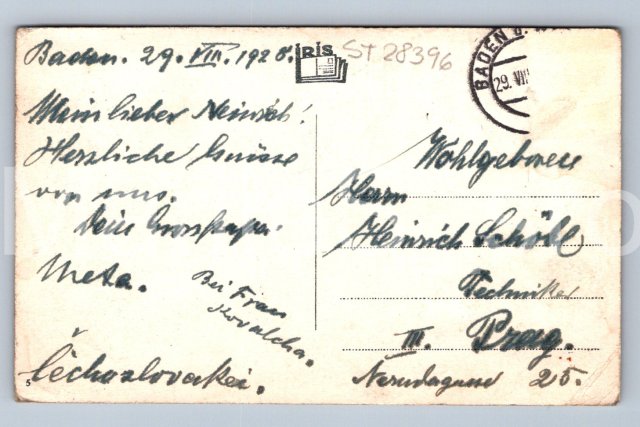 Baden. 29. VIII. 1928.
IRIS
ST 28396
BADEN b. W
29. VIII
Mein lieber Heinrich!
Herzliche Grüsse
von uns.
Dein Grosspapa.
Meta.
Bei Frau
Kovalcha.
Čechoslovakei.
5
Wohlgeboren
Herrn
Heinrich Schöbl
Techniker
III. Prag.
Nerudagasse 25.